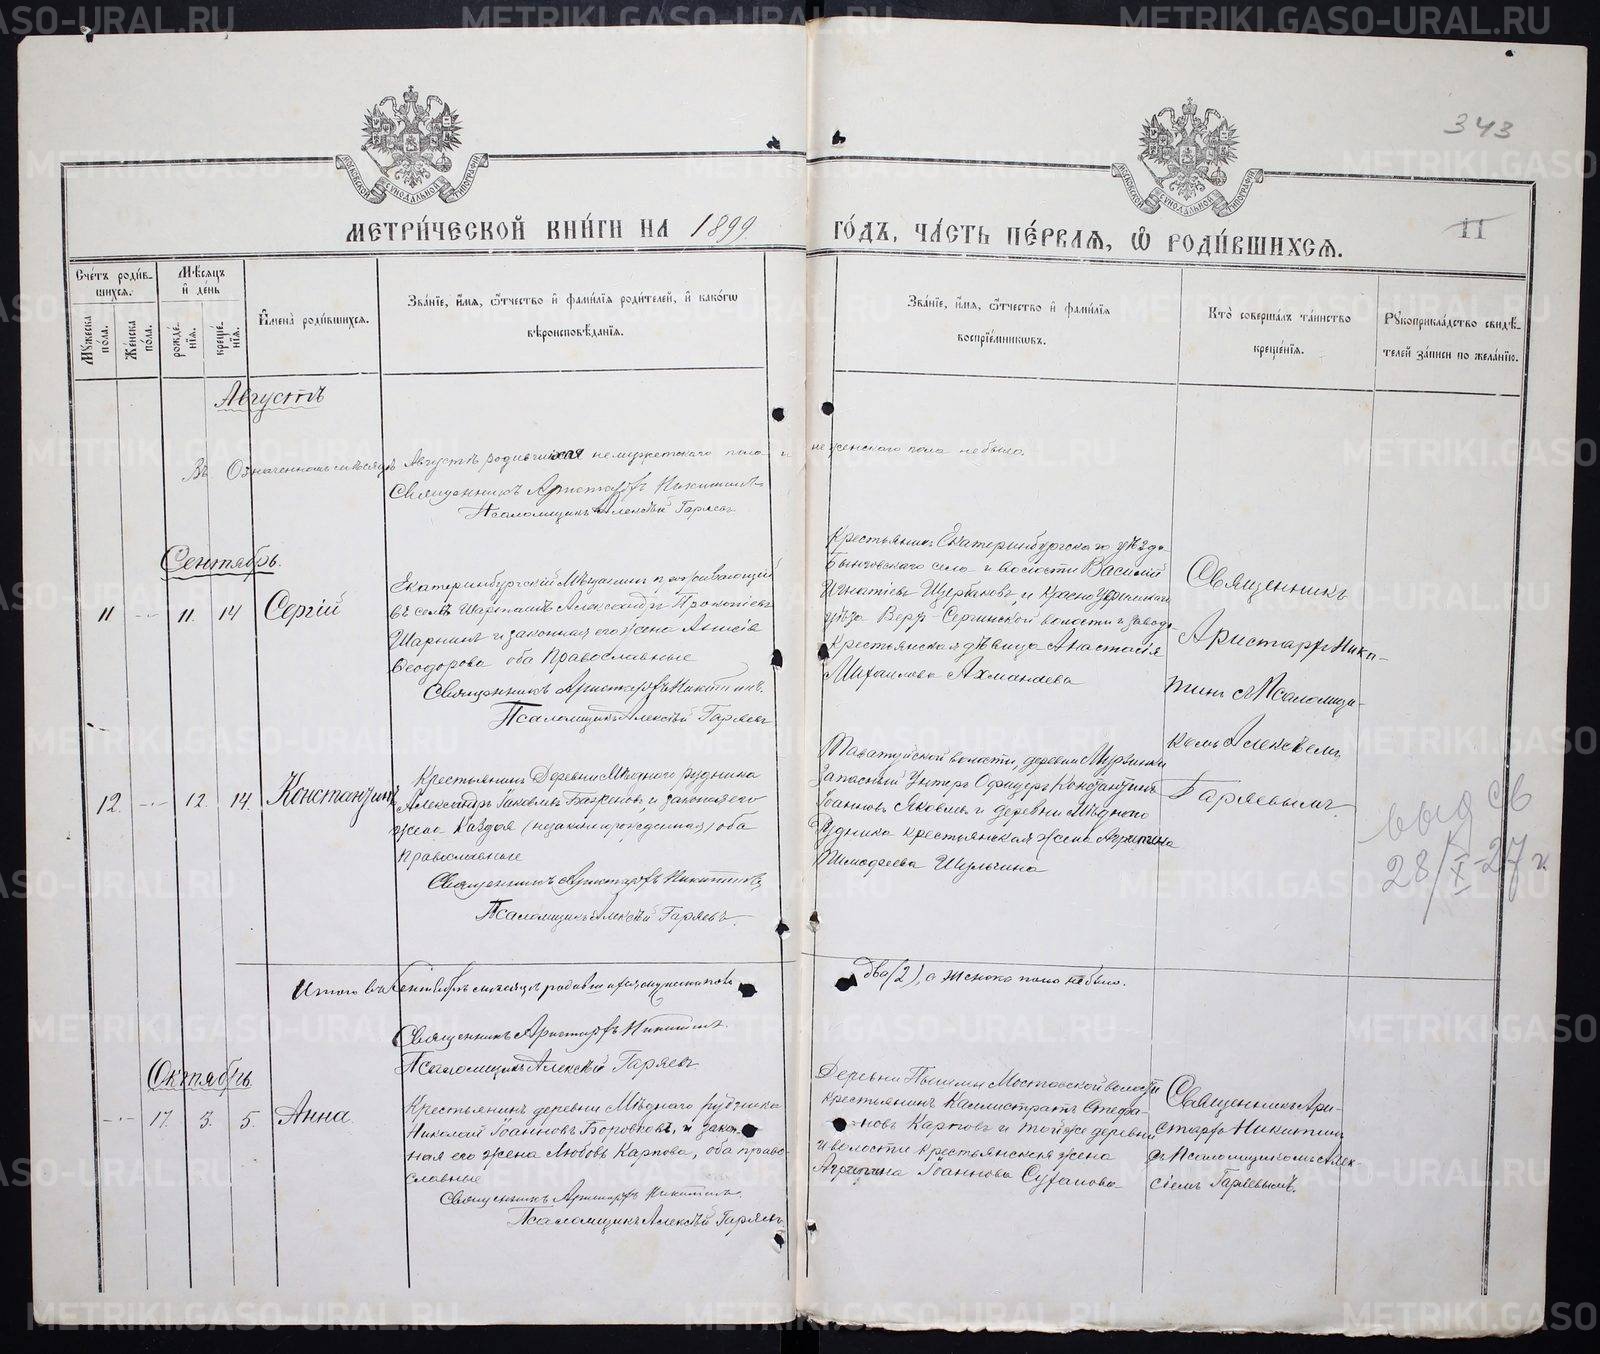 343
МОСКОВСКОЙ СѴНОДАЛЬНОЙ ТИПОГРАФІИ
МОСКОВСКОЙ СѴНОДАЛЬНОЙ ТИПОГРАФІИ
МЕТРИ́ЧЕСКОЙ КНИ́ГИ НА 1899
ГО́ДЪ, ЧА́СТЬ ПЕ́РВАѦ, Ѽ РОДИ́ВШИХСѦ.
11
Сче́тъ роди́в-
шихсѧ.
Мꙋжеска по́ла.
Же́нска по́ла.
Мѣ́сѧцъ
и҆ де́нь
рожде́-
нїѧ.
креще́-
нїѧ.
И҆мена̀ роди́вшихсѧ.
Зва́нїе, и҆́мѧ, ѻ҆́тчество и҆ фами́лїѧ роди́телей, и҆ како́гѡ
вѣроисповѣ́данїѧ.
Зва́нїе, и҆́мѧ, ѻ҆́тчество и҆ фами́лїѧ
воспрїе́мникѡвъ.
Кто̀ соверша́лъ та́инство
креще́нїѧ.
Рꙋкоприкла́дство свидѣ́-
телей за́писи по жела́нїю.
Августъ
Въ Означенномъ мѣсяцѣ Августѣ родившихся не мужескаго пола и не женскаго пола не было.
Священникъ Аристархъ Никитинъ
Псаломщикъ Алексѣй Гаряевъ
Сентябрь.
11 -- 11. 14 Сергій
Екатеринбургскій Мѣщанинъ проживающій
въ селѣ Шарташѣ Александръ Прокопіевъ
Шарнинъ и законная его жена Анисія
Ѳеодорова оба Православные
Священникъ Аристархъ Никитинъ.
Псаломщикъ Алексѣй Гаряевъ
Крестьянинъ Екатеринбургскаго уѣзда
Быньговскаго села и волости Василій
Игнатіевъ Щербаковъ, и Красноуфимскаго
уѣзда Верх-Сергинской волости и завода
Крестьянская дѣвица Анастасія
Михаилова Ахманаева
Священникъ
Аристархъ Ники-
тинъ съ Псаломщи-
комъ Алексѣемъ
Гаряевымъ.
12. -- 12. 14. Константинъ
Крестьянинъ Деревни Мѣднаго рудника
Александръ Іаковлевъ Баженовъ, и законная его
жена (незаконнорожденная) оба
Православные
Священникъ Аристархъ Никитинъ
Псаломщикъ Алексѣй Гаряевъ.
Таватуйской волости, деревни Мурзинки
Запасный Унтеръ Офицеръ Константинъ
Іоанновъ Яковлевъ и деревни Мѣднаго
Рудника крестьянская жена Агрипина
Тимофеева Шульгина
выд св
28/X-27 г.
Итого въ Сентябрѣ мѣсяцѣ родившихся мужеска пола два (2), а женскаго пола не было.
Священникъ Аристархъ Никитинъ.
Псаломщикъ Алексѣй Гаряевъ
Октябрь
-- 17. 3. 5. Анна.
Крестьянинъ деревни Мѣднаго рудника
Николай Іоанновъ Боровковъ, и закон-
ная его жена Любовь Карпова, оба право-
славные
Священникъ Аристархъ Никитинъ.
Псаломщикъ Алексѣй Гаряевъ
Деревни Пышмы Мостовской волости
крестьянинъ Каллистратъ Стефа-
новъ Карповъ и той же деревни
и волости крестьянская жена
Агрипина Іоаннова Суханова
Священникъ Ари-
стархъ Никитинъ
съ Псаломщикомъ Алек-
сіемъ Гаряевымъ.
METRIKI.GASO-URAL.RU